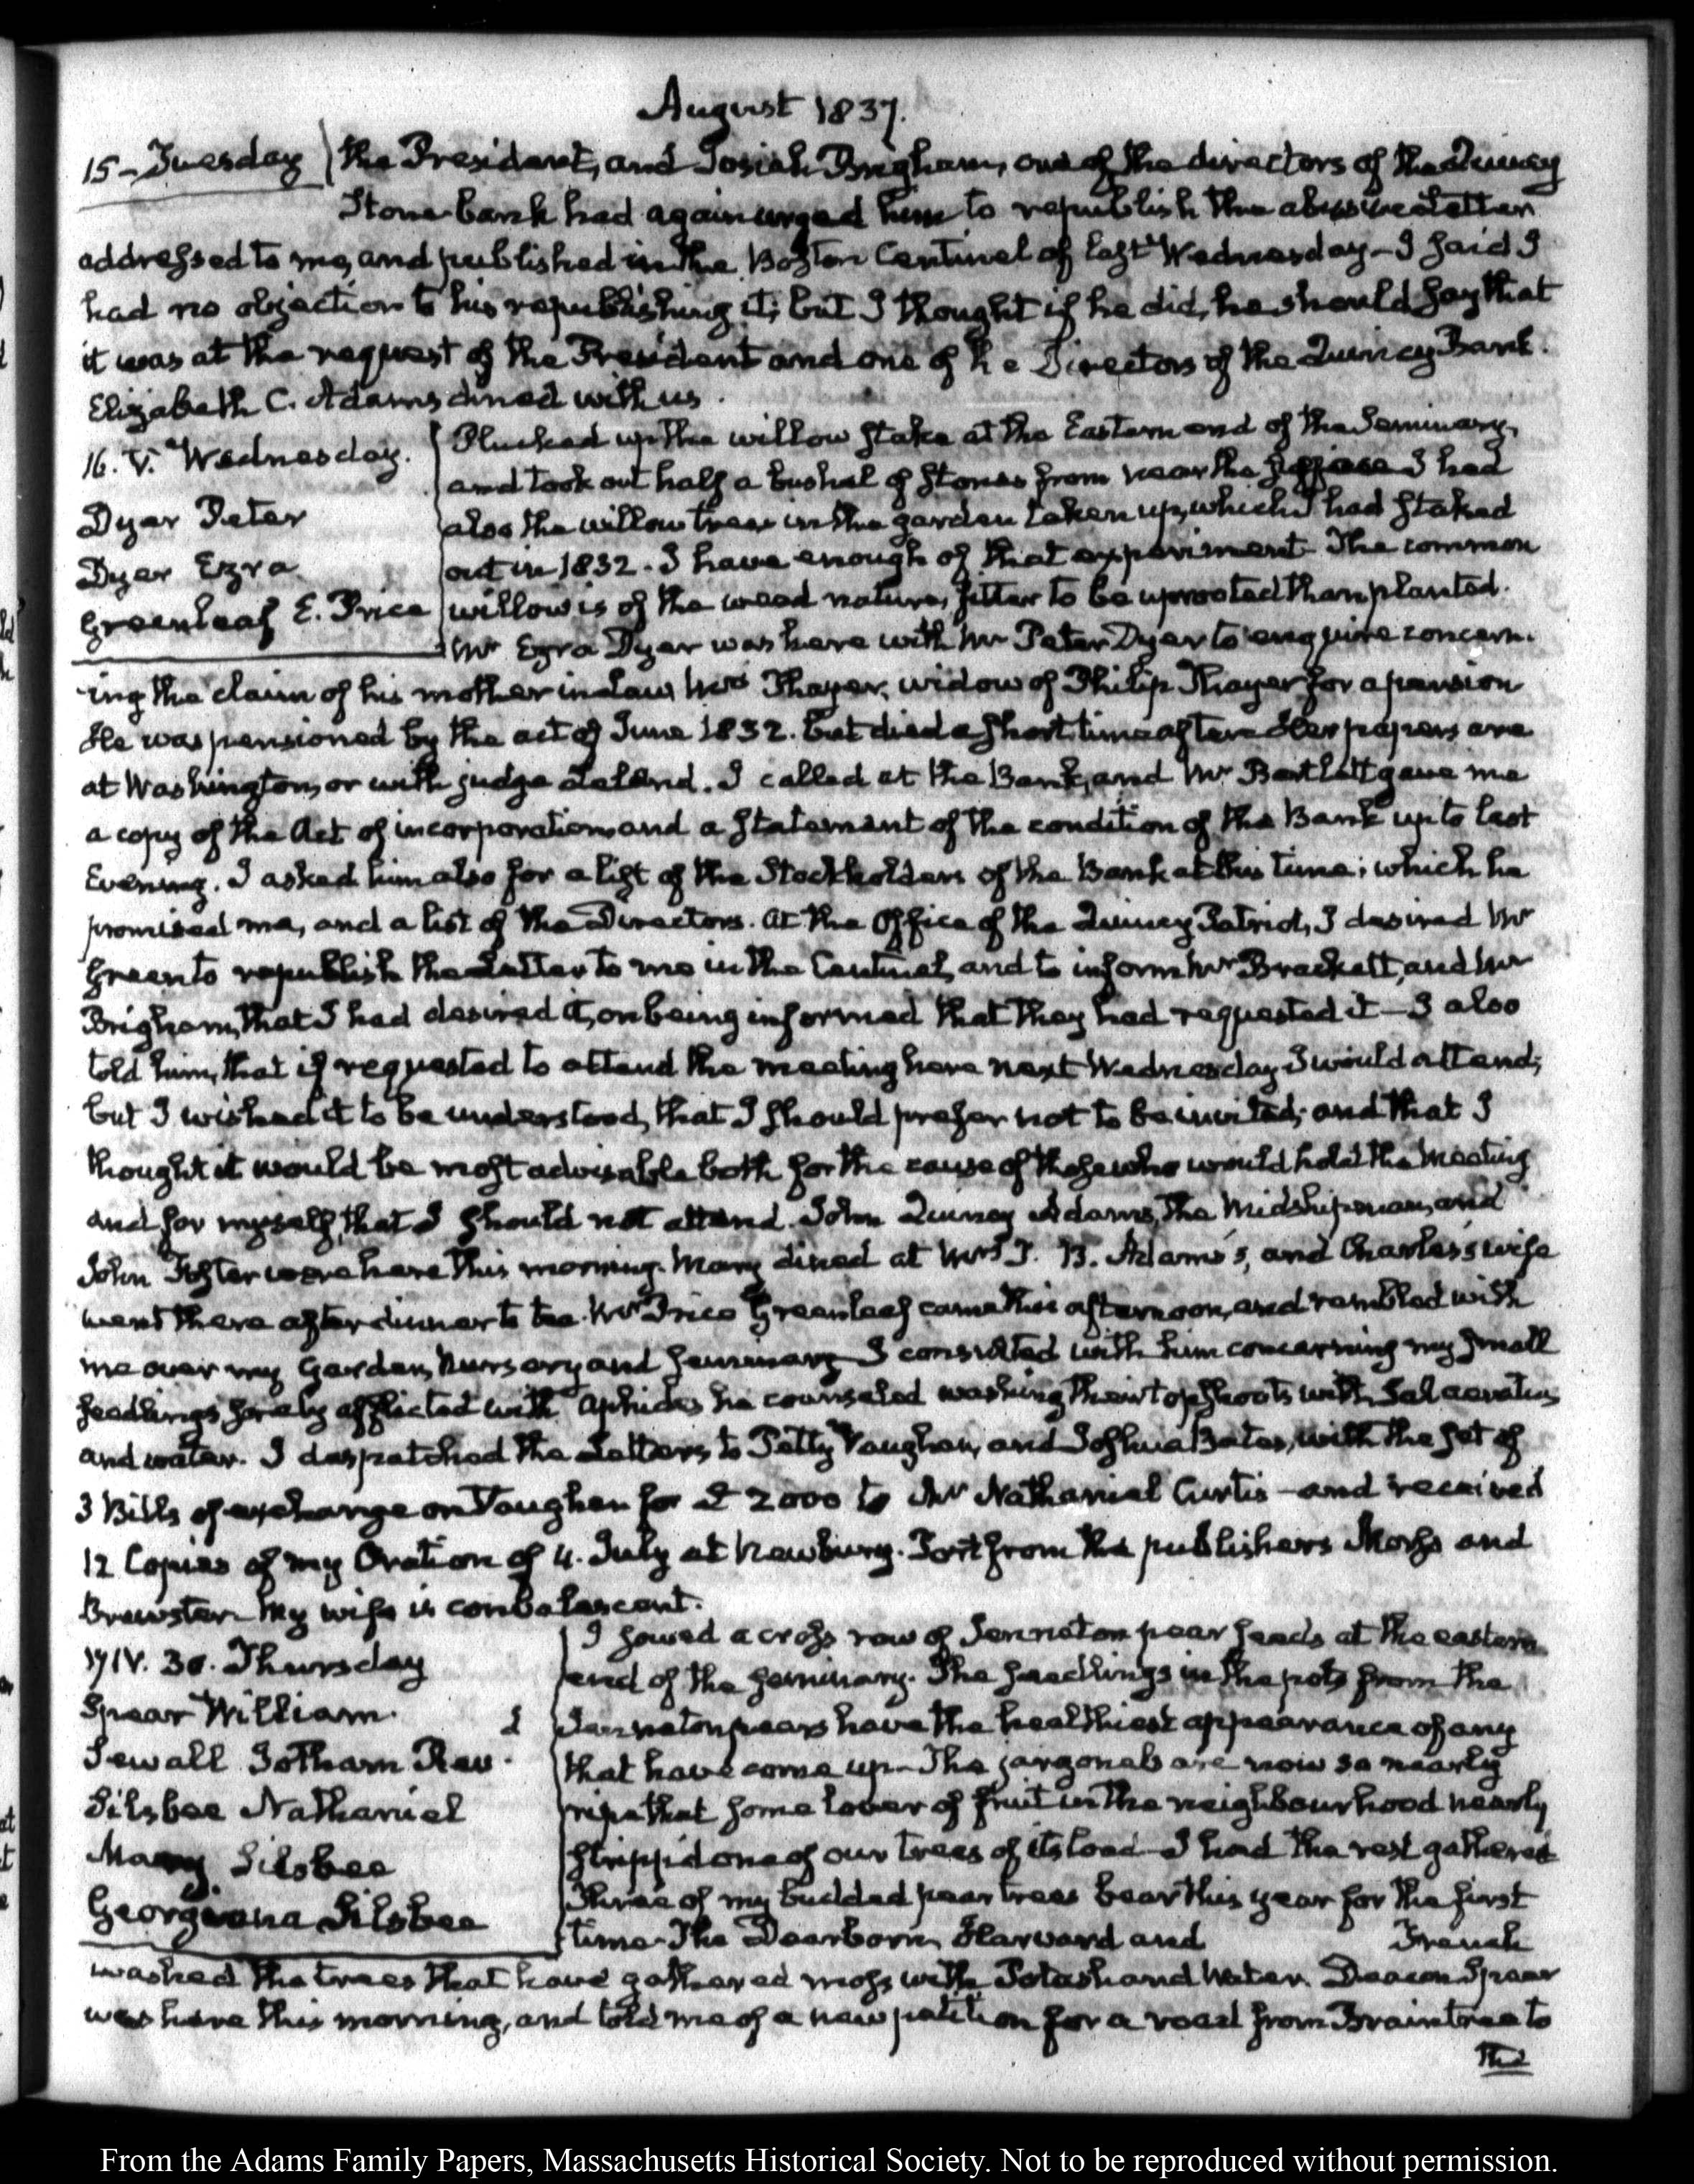 August 1837.
15 - Tuesday
the President, and Josiah Brigham, one of the directors of the Quincy
Stone bank had again urged him to republish the abusive Letter
addressed to me, and published in the Boston Centinel of last Wednesday - I said I
had no objection to his republishing it; but I thought if he did, he should say that
it was at the request of the President and one of the Directors of the Quincy Bank.
Elizabeth C. Adams dined with us.
16. V. Wednesday.
Dyer Peter
Dyer Ezra
Greenleaf E. Price
Plucked up the willow stake at the Eastern end of the Seminary,
and took out half a bushel of stones from near the surface I had
also the willow trees in the garden taken up, which I had staked
out in 1832. I have enough of that experiment. The common
willow is of the weed nature, fitter to be uprooted than planted.
Mr Ezra Dyer was here with Mr Peter Dyer to enquire concern-
ing the claim of his mother in law, Mrs Thayer, widow of Philip Thayer for a pension
He was pensioned by the act of June 1832. but died a short time after. Her papers are
at Washington, or with judge Leland. I called at the Bank, and Mr Bartlett gave me
a copy of the Act of incorporation and a statement of the condition of the Bank up to last
Evening. I asked him also for a list of the Stockholders of the Bank at this time; which he
promised me, and a list of the Directors. At the Office of the Quincy Patriot, I desired Mr
Green to republish the Letter to me in the Centinel, and to inform Mr Brackett, and Mr
Brigham, that I had desired it, on being informed that they had requested it - I also
told him, that if requested to attend the meeting here next Wednesday I would attend;
but I wished it to be understood, that I should prefer not to be invited; and that I
thought it would be most advisable both for the cause of those who would hold the meeting
and for myself, that I should not attend. John Quincy Adams, the Midshipman, and
John Foster were here this morning. Mary dined at Mrs T. B. Adams's, and Charles's wife
went there after dinner to tea. Mr Price Greenleaf came this afternoon, and rambled with
me over my Garden, Nursery and Seminary I consulted with him concerning my small
seedlings sorely afflicted with Aphides he counseled washing their top shoots with Sal aeratus
and water. I despatched the Letters to Petty Vaughan, and Joshua Bates, with the set of
3 Bills of exchange on Vaughan for £ 2000 to Mr Nathaniel Curtis - and received
12 Copies of my Oration of 4. July at Newbury-Port from the publishers Morss and
Brewster. My wife is convalescent.
17 IV. 30. Thursday
Spear William. D
Sewall Jotham Rev.
Silsbee Nathaniel
Mary Silsbee
Georgiana Silsbee
I sowed a cross row of Jenneton pear seeds at the eastern
end of the seminary. The seedlings in the pots from the
Jenneton pears have the healthiest appearance of any
that have come up - The jargonels are now so nearly
ripe that some lover of fruit in the neighbourhood nearly
stripp'd one of our trees of its load - I had the rest gathered
Three of my budded pear trees bear this year for the first
time - The Dearborn, Harvard and French
washed the trees that have gathered moss with Potash and Water. Deacon Spear
was here this morning, and told me of a new petition for a road from Braintree to
the
From the Adams Family Papers, Massachusetts Historical Society. Not to be reproduced without permission.